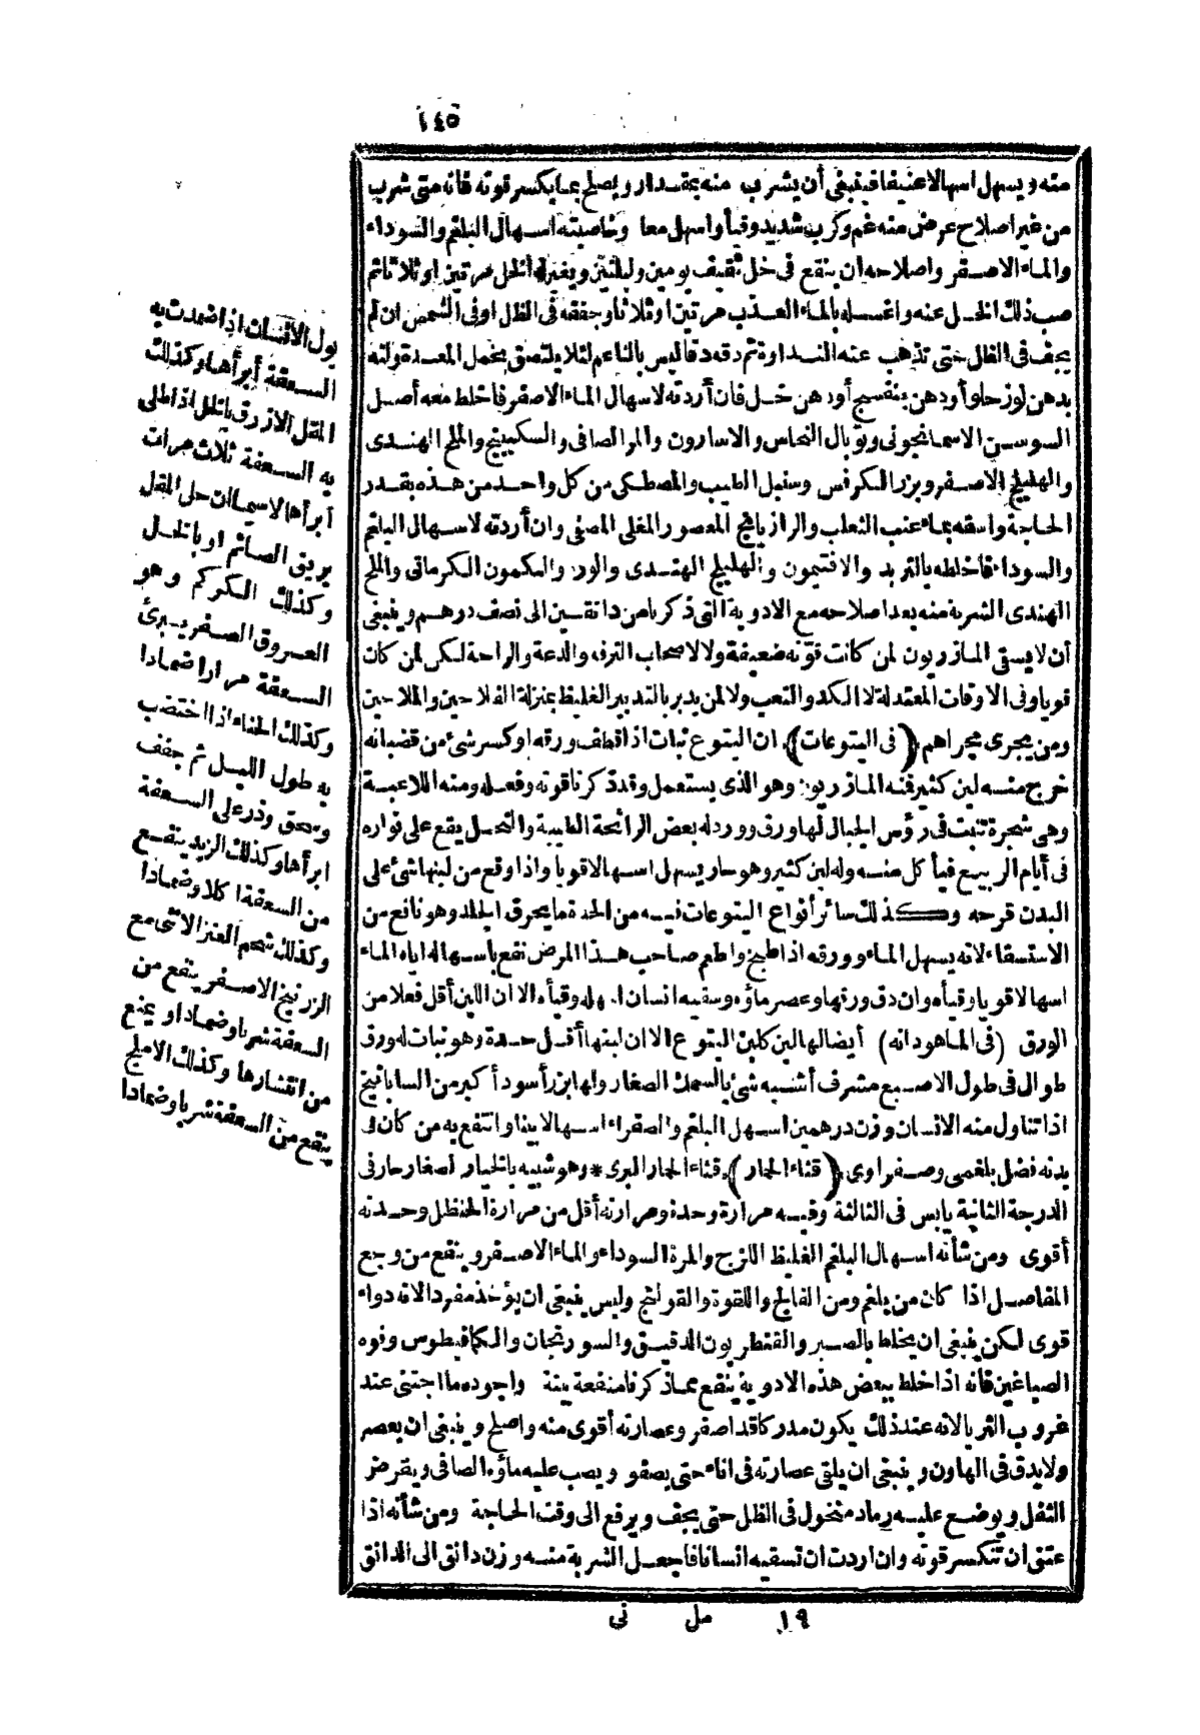 ١٤٥
منه ويسهل اسهالا عنيفا فينبغي أن يشرب منه بمقدار ويصلح بما يكسر قوته فانه متى شرب
من غير اصلاح عرض منه غم وكرب شديد وقيأ واسهل معا وخاصيته اسهال البلغم والسوداء
والماء الاصفر واصلاحه ان ينقع فى خل ثقيف يومين وليلتين ويغير له الخل مرتين او ثلاثا ثم
صب ذلك الخل عنه واغسله بالماء العذب مرتين او ثلاثا وجففه فى الظل او فى الشمس ان لم
يجف فى الظل حتى تذهب عنه النداوة ثم دقه دقا ليس بالناعم لئلا يلتصق بخمل المعدة ولته
بدهن لوز حلو أو دهن بنفسج أو دهن خل فان أردته لاسهال الماء الاصفر فاخلط معه أصل
السوسن الاسمانجونى وتوبال النحاس والاسارون والمر الصافى والسكبينج والملح الهندى
والهليلج الاصفر وبزر الكرفس وسنبل الطيب والمصطكى من كل واحد من هذه بقدر
الحاجة واسقه بماء عنب الثعلب والرازيانج المعصور المغلى المصفى وان أردته لاسهال البلغم
والسوداء فاخلطه بالتربد والافتيمون والهليلج الهندى والورد والكمون الكرمانى والملح
الهندى الشربة منه بعد اصلاحه مع الادوية التى ذكرنا من دانقين الى نصف درهم وينبغى
أن لا يسقى المازريون لمن كانت قوته ضعيفة ولا لاصحاب الترفه والدعة والراحة لكن لمن كان
قويا وفى الاوقات المعتدلة لا الكد والتعب ولا لمن يدبر بالتدبير الغليظ بمنزلة الفلاحين والملاحين
ومن يجرى مجراهم (فى اليتوعات) ان اليتوع نبات اذا قطف ورقه او كسر شئ من قضبانه
خرج منه لبن كثير فنه المازريون وهو الذى يستعمل وقد ذكرنا قوته وفعله ومنه اللاعبة
وهى شجرة تنبت فى رؤس الجبال لها ورق وورد له بعض الرائحة الطيبة والنحل يقع على نواره
فى أيام الربيع فيأكل منه وله لبن كثير وهو حار يسهل اسهالا قويا واذا وقع من لبنها شئ على
البدن قرحه وكذلك سائر أنواع اليتوعات فيه من الحدة ما يحرق الجلد وهو نافع من
الاستسقاء لانه يسهل الماء وورقه اذا طبخ واطعم صاحب هذا المرض نفع بأسهاله اياه الماء
اسهالا قويا وقيأه وان دق ورقها وعصر ماؤه وسقيه انسان اسهله وقيأه الا ان اللبن أقل فعلا من
الورق (فى الماهودانه) أيضا لها لبن كلبن اليتوع الا ان لبنها أقل حدة وهو نبات له ورق
طوال فى طول الاصبع مشرف أشبه شئ بالسمك الصغار ولها بزر أسود أكبر من السابانيخ
اذا تناول منه الانسان وزن درهمين اسهل البلغم والصفراء اسهالا لينا وانتفع به من كان فى
بدنه فضل بلغمى وصفراوى (قثاء الحمار) قثاء الحمار البرى * وهو شبيه بالخيار اصغار حار فى
الدرجة الثانية يابس فى الثالثة وفيه مرارة وحدة ومرارته أقل من مرارة الحنظل وحدته
أقوى ومن شأنه اسهال البلغم الغليظ اللزج والمرة السوداء والماء الاصفر وينفع من وجع
المفاصل اذا كان من بلغم ومن الفالج واللقوة والقولنج وليس ينبغى ان يؤخذ مفردا لانه دواء
قوى لكن ينبغى ان يخلط بالصبر والقنطريون الدقيق والسورنجان والكمافيطوس وفوه
الصباغين فانه اذا خلط ببعض هذه الادوية ينفع مما ذكرنا منفعة بينة واجوده ما اجتنى عند
غروب الثريا لانه عند ذلك يكون مدركا قد اصفر وعصارته أقوى منه واصلح وينبغى ان يعصر
ولا يدق فى الهاون وينبغى ان يلقى عصارته فى اناء حتى يصفو ويصب عليه ماؤه الصافى ويقرض
الثفل ويوضع عليه رماد منخول فى الظل حتى يجف ويرفع الى وقت الحاجة ومن شأنه اذا
عتق ان تنكسر قوته وان اردت ان تسقيه انسانا فاجعل الشربة منه وزن دانق الى الدانق
١٩ مل نى
بول الانسان اذا ضمدت به
السعفة أبرأها وكذلك
المقل الازرق بالخل اذا طلى
به السعفة ثلاث مرات
أبرأها لاسيما ان حل المقل
بريق الصائم او بالخل
وكذلك الكركم وهو
العروق الصفر يبرئ
السعفة مرارا ضمادا
وكذلك الحناء اذا اختضب
به طول الليل ثم جفف
وسحق وذر على السعفة
ابرأها وكذلك الزبد ينفع
من السعفة اكلا وضمادا
وكذلك شحم العنز الانثى مع
الزرنيخ الاصفر ينفع من
السعفة شربا وضمادا ويمنع
من انتشارها وكذلك الاملج
ينفع من السعفة شربا وضمادا